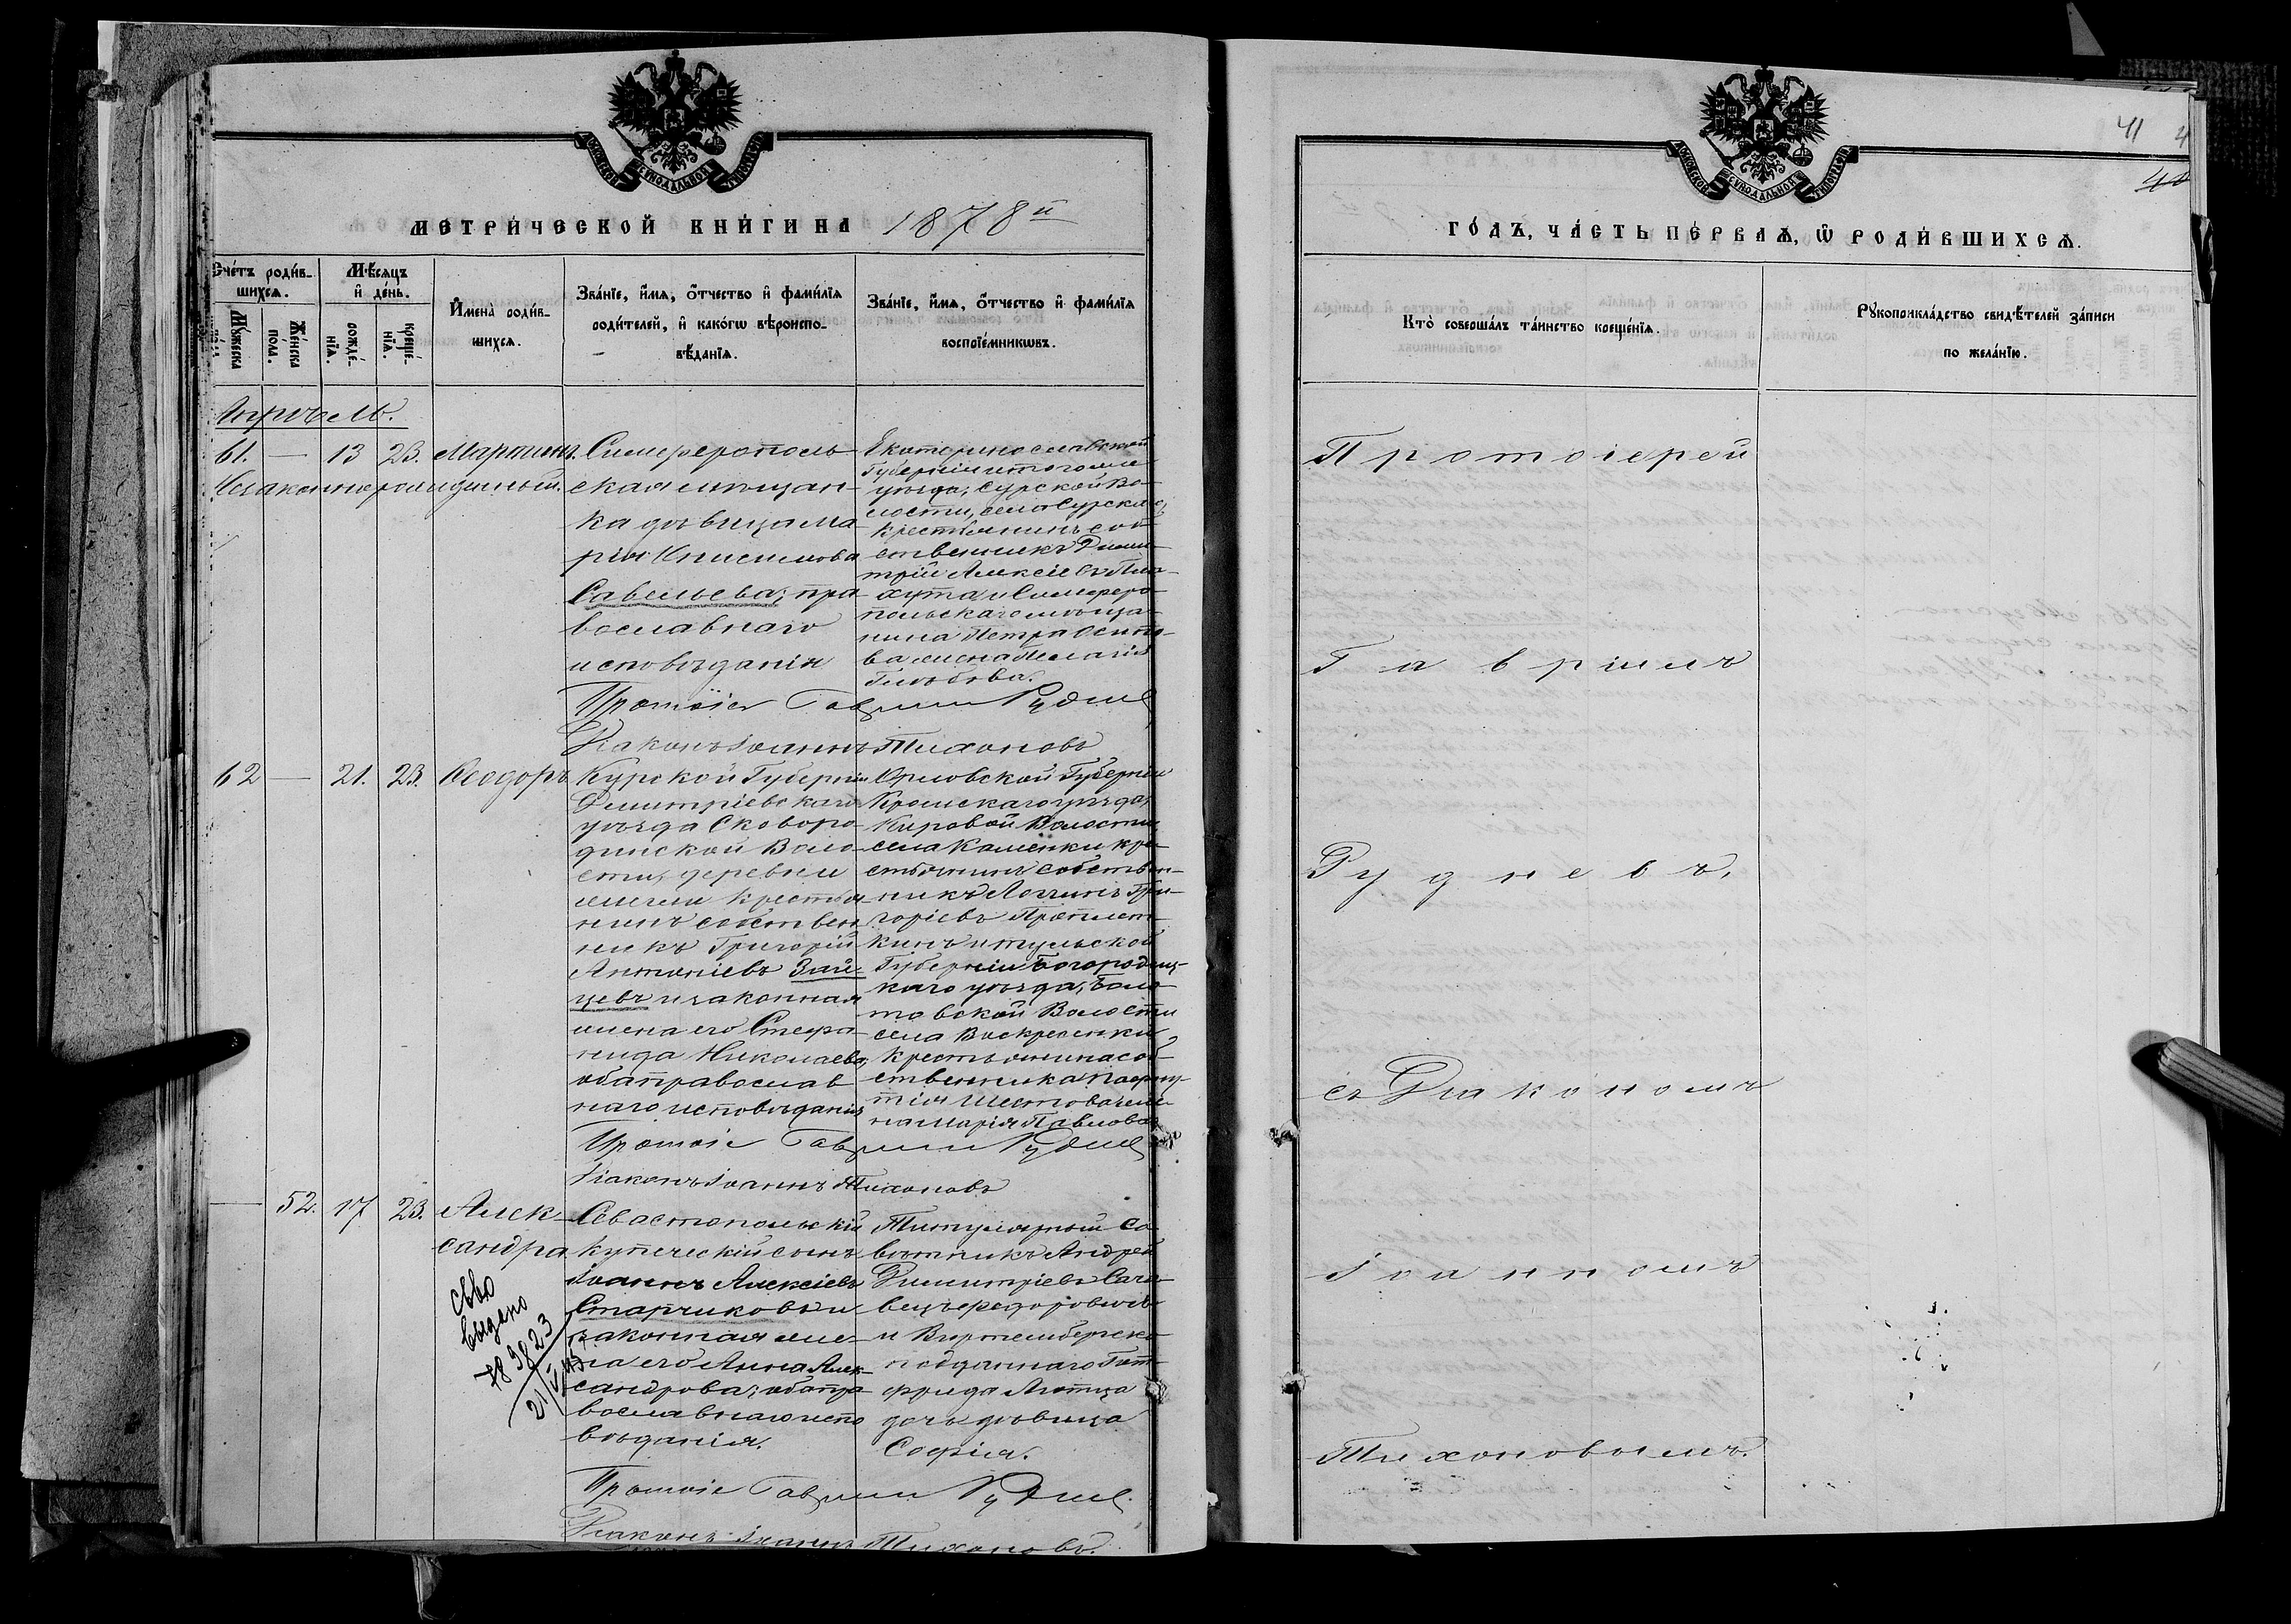 МОСКОВСКОЙ СѴНОДАЛЬНОЙ ТИПОГРАФІИ
МЕТРИ́ЧЕСКОЙ КНИ́ГИ НА 1878й
Сче́тъ роди́в-
шихсѧ.
Мѣ́сѧцъ
и҆ де́нь.
Мꙋ́жеска
по́ла.
Же́нска
по́ла.
рожде́-
нїѧ.
креще́-
нїѧ.
И҆мена̀ роди́в-
шихсѧ.
Зва́нїе, и҆́мѧ, ѻ҆́тчество и҆ фами́лїѧ
роди́телей, и҆ како́гѡ вѣроиспо-
вѣ́данїѧ.
Зва́нїе, и҆́мѧ, ѻ҆́тчество и҆ фами́лїѧ
воспрїе́мникѡвъ.
Апрѣль.
61. — 13 23. Мартинъ.
Незаконнорожденный.
Симферополь-
ская мѣщан-
ка дѣвица Ма-
рія Онисимова
Савельева; пра-
вославнаго
исповѣданія
Екатеринославской
Губерніи и того же
уѣзда, Сурской Во-
лости, села Сурскаго,
крестьянинъ соб-
ственникъ Дими-
трій Алексіевъ
и Симферо-
польскаго мѣща-
нина Петра Осипо-
ва жена Пелагія
Глѣбова.
Протоіер Гавріил Руднев
Діаконъ Іоаннъ Тихоновъ
62 — 21. 23. Ѳеодоръ
Курской Губерніи
Димитріевскаго
уѣзда Сковоро-
динской Воло-
сти, деревни
крестья-
нинъ собствен-
никъ Григорій
Антоніевъ Зай-
цевъ и законная
жена его Стефа-
нида Николаева;
оба православ-
наго исповѣданія
Орловской Губерніи
Кромскаго уѣзда,
Кировой Волости,
села Каменки кре-
стьянинъ собствен-
никъ Логгинъ Гри-
горіевъ
и Тульской
Губерніи Богородиц-
каго уѣзда,
Волости
села Воскресенки
крестьянина соб-
ственника Пафну-
тія Шестова же-
на Марія Павлова
Протоіе Гавріил Руднев
Діаконъ Іоаннъ Тихоновъ
— 52. 17 23. Алек-
сандра
Севастопольскій
купеческій сынъ
Іоаннъ Алексіевъ
Старчиковъ и
законная же-
на его Анна Алек-
сандрова; оба пра-
вославнаго испо-
вѣданія.
Титулярный Со-
вѣтникъ Андрей
Димитріевъ
и Виртембергско-
подданнаго Гот-
фрида
дочь дѣвица
Софія.
Протоіе Гавріил Руднев.
Діаконъ Іоаннъ Тихоновъ.
св-во
выдено
41
МОСКОВСКОЙ СѴНОДАЛЬНОЙ ТИПОГРАФІИ
ГО́ДЪ, ЧА́СТЬ ПЕ́РВАѦ, Ѽ РОДИ́ВШИХСѦ.
Кто̀ соверша́лъ та́инство креще́нїѧ.
Рꙋкоприкла́дство свидѣ́телей за́писи
по жела́нїю.
Протоіерей
Гавріилъ
Рудневъ,
съ Діакономъ
Іоанномъ
Тихоновымъ.